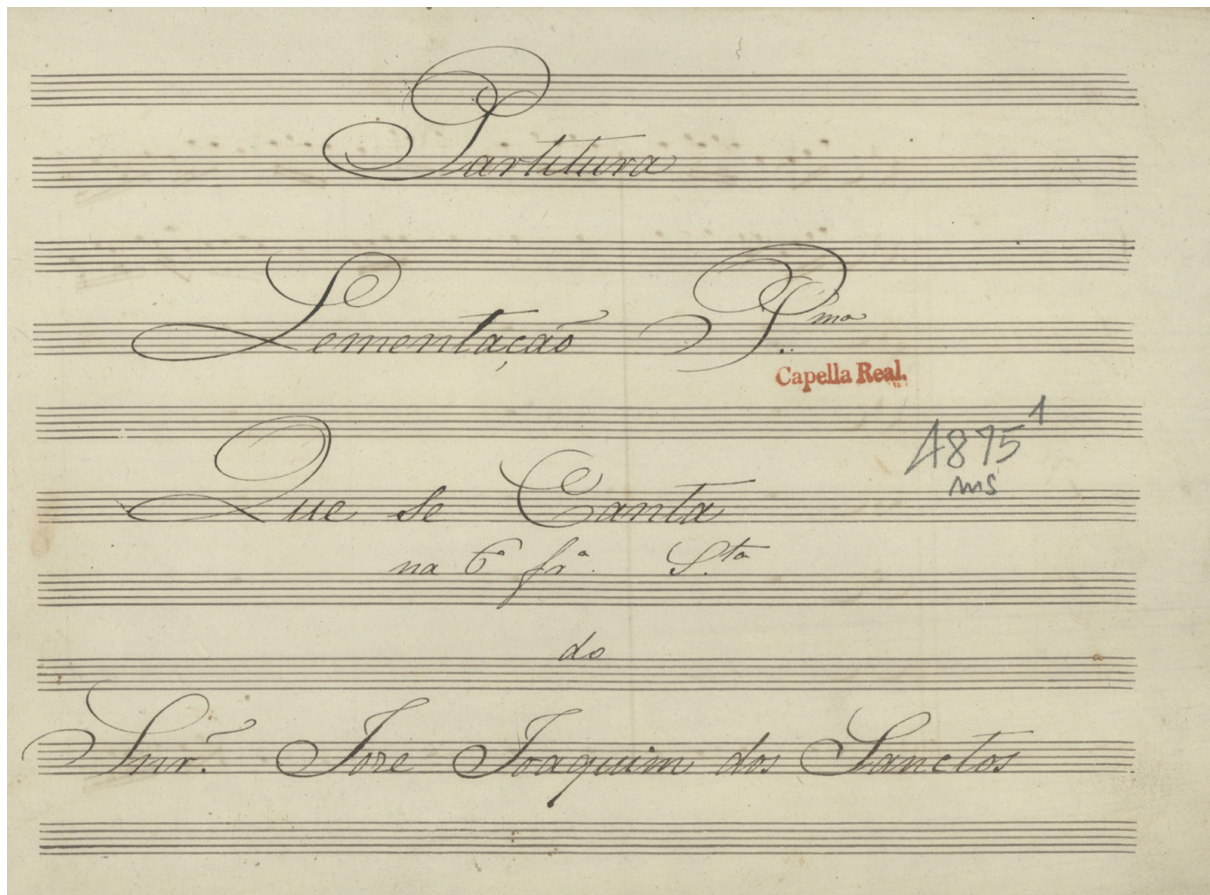 Partitura
Lementação P.ma
Capella Real.
A875 1
ms
Que se Canta
na 6ª fr.ª S.ta
do
Snr. Joze Joaquim dos Sanctos